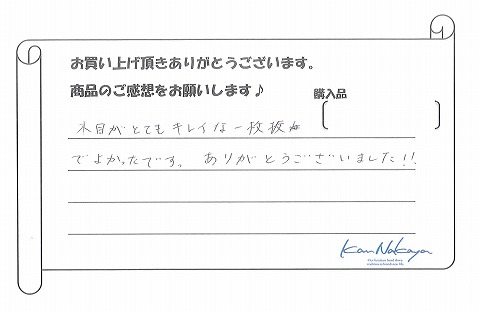 お買い上げ頂きありがとうございます。
商品のご感想をお願いします♪
購入品
木目がとてもキレイな一枚板が
でよかったです。 ありがとうございました!!
KanNakaya